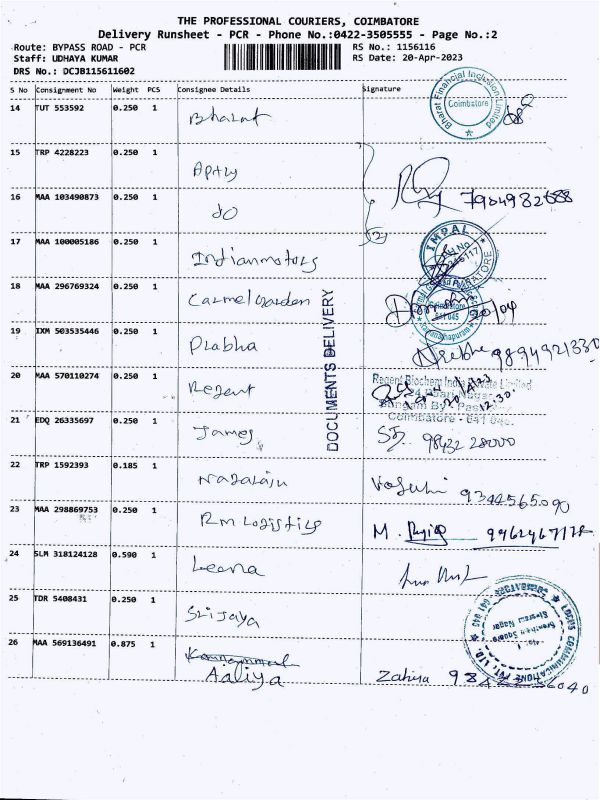 THE PROFESSIONAL COURIERS, COIMBATORE
Delivery Runsheet - PCR - Phone No.:0422-3505555 - Page No.:2
Route: BYPASS ROAD - PCR RS No.: 1156116
Staff: UDHAYA KUMAR RS Date: 20-Apr-2023
DRS No.: DCJB115611602
S No Consignment No Weight PCS Consignee Details Signature
14 TUT 553592 0.250 1 Bharat
Bharat Financial Inclusion Limited Coimbatore
15 TRP 4228223 0.250 1
16 MAA 103490873 0.250 1 do
17 MAA 100005186 0.250 1 Indianmotors
IMPAL
18 MAA 296769324 0.250 1 Carmel Garden
20/04
19 IXM 503535446 0.250 1 Prabha
DOCUMENTS DELIVERY
20 MAA 570110274 0.250 1 Regent
Regent Biochem India Private Limited
21 EDQ 26335697 0.250 1 James 98432 28000
22 TRP 1592393 0.185 1 Nagaraju 9344565090
23 MAA 298869753 0.250 1 RM Logistics M.
24 SLM 318124128 0.590 1 Leena
25 TDR 5408431 0.250 1 Srijaya
26 MAA 569136491 0.875 1 Aaliya